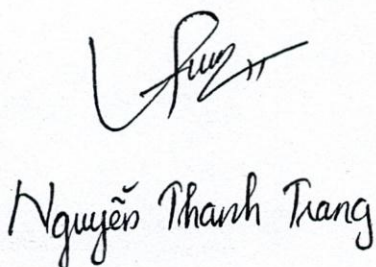 Nguyễn Thanh Trang